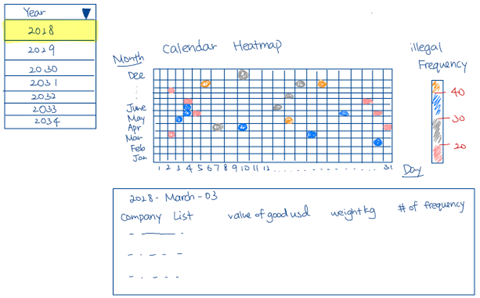 Year
2028
2029
2030
2031
2032
2033
2034
Calendar Heatmap
Month
Dec
June
May
Apr
Mar
Feb
Jan
1 2 3 4 5 6 7 8 9 10 11 12 ................ 31
Day
illegal
Frequency
40
30
20
2028 - March - 03
Company List value of good usd weight kg # of frequency